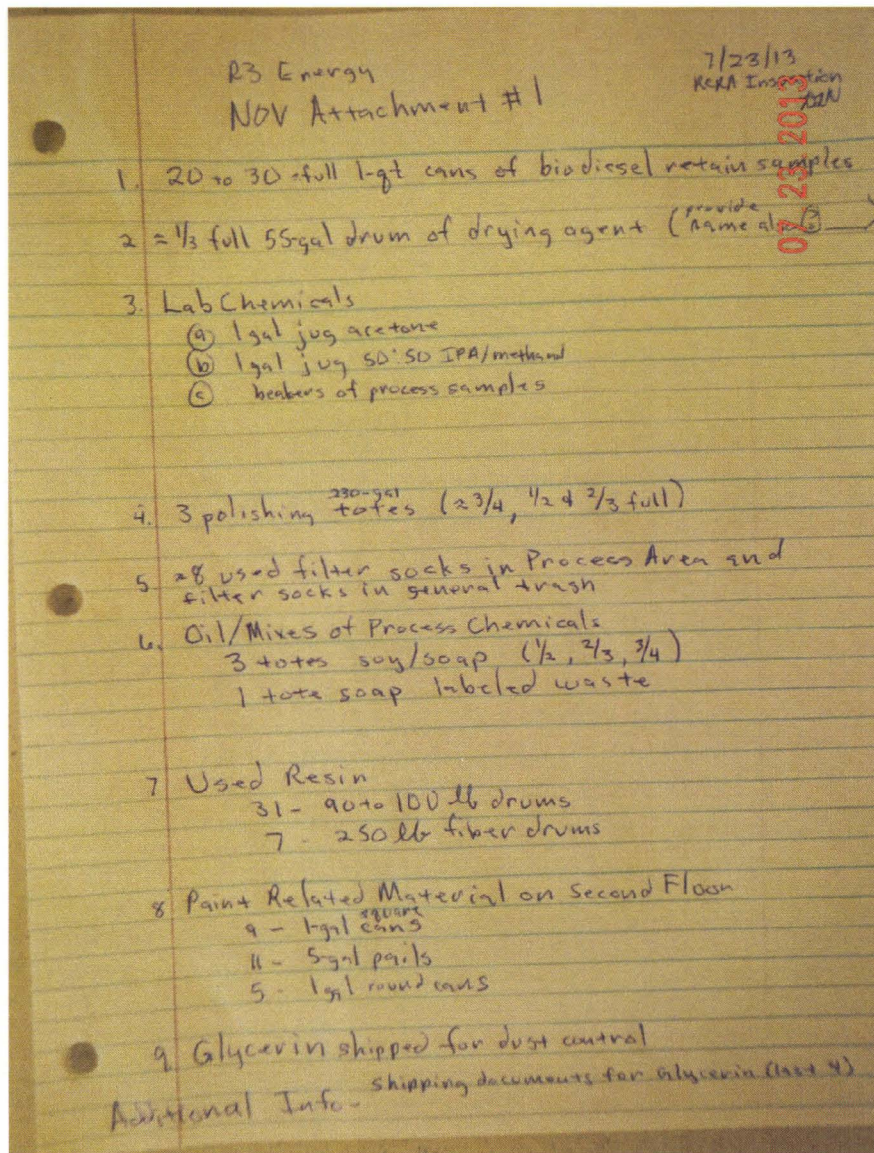 R3 Energy
NOV Attachment #1
7/23/13
RCRA Inspection
07 23 2013
1. 20 to 30 full 1-qt cans of biodiesel retain samples
2 ≈ 1/3 full 55-gal drum of drying agent (provide name
3. Lab Chemicals
(a) 1 gal jug acetone
(b) 1 gal jug 50:50 IPA/methanol
(c) beakers of process samples
4. 3 polishing 230-gal totes (≈ 3/4, 1/2 & 2/3 full)
5 ≈8 used filter socks in Process Area and
filter socks in general trash
6. Oil/Mixes of Process Chemicals
3 totes soy/soap (1/2, 2/3, 3/4)
1 tote soap labeled waste
7 Used Resin
31 - 90 to 100 lb drums
7 - 250 lb fiber drums
8 Paint Related Material on Second Floor
9 - 1-gal square cans
11 - 5-gal pails
5 - 1 gal round cans
9 Glycerin shipped for dust control
Additional Info - shipping documents for Glycerin (last 4)